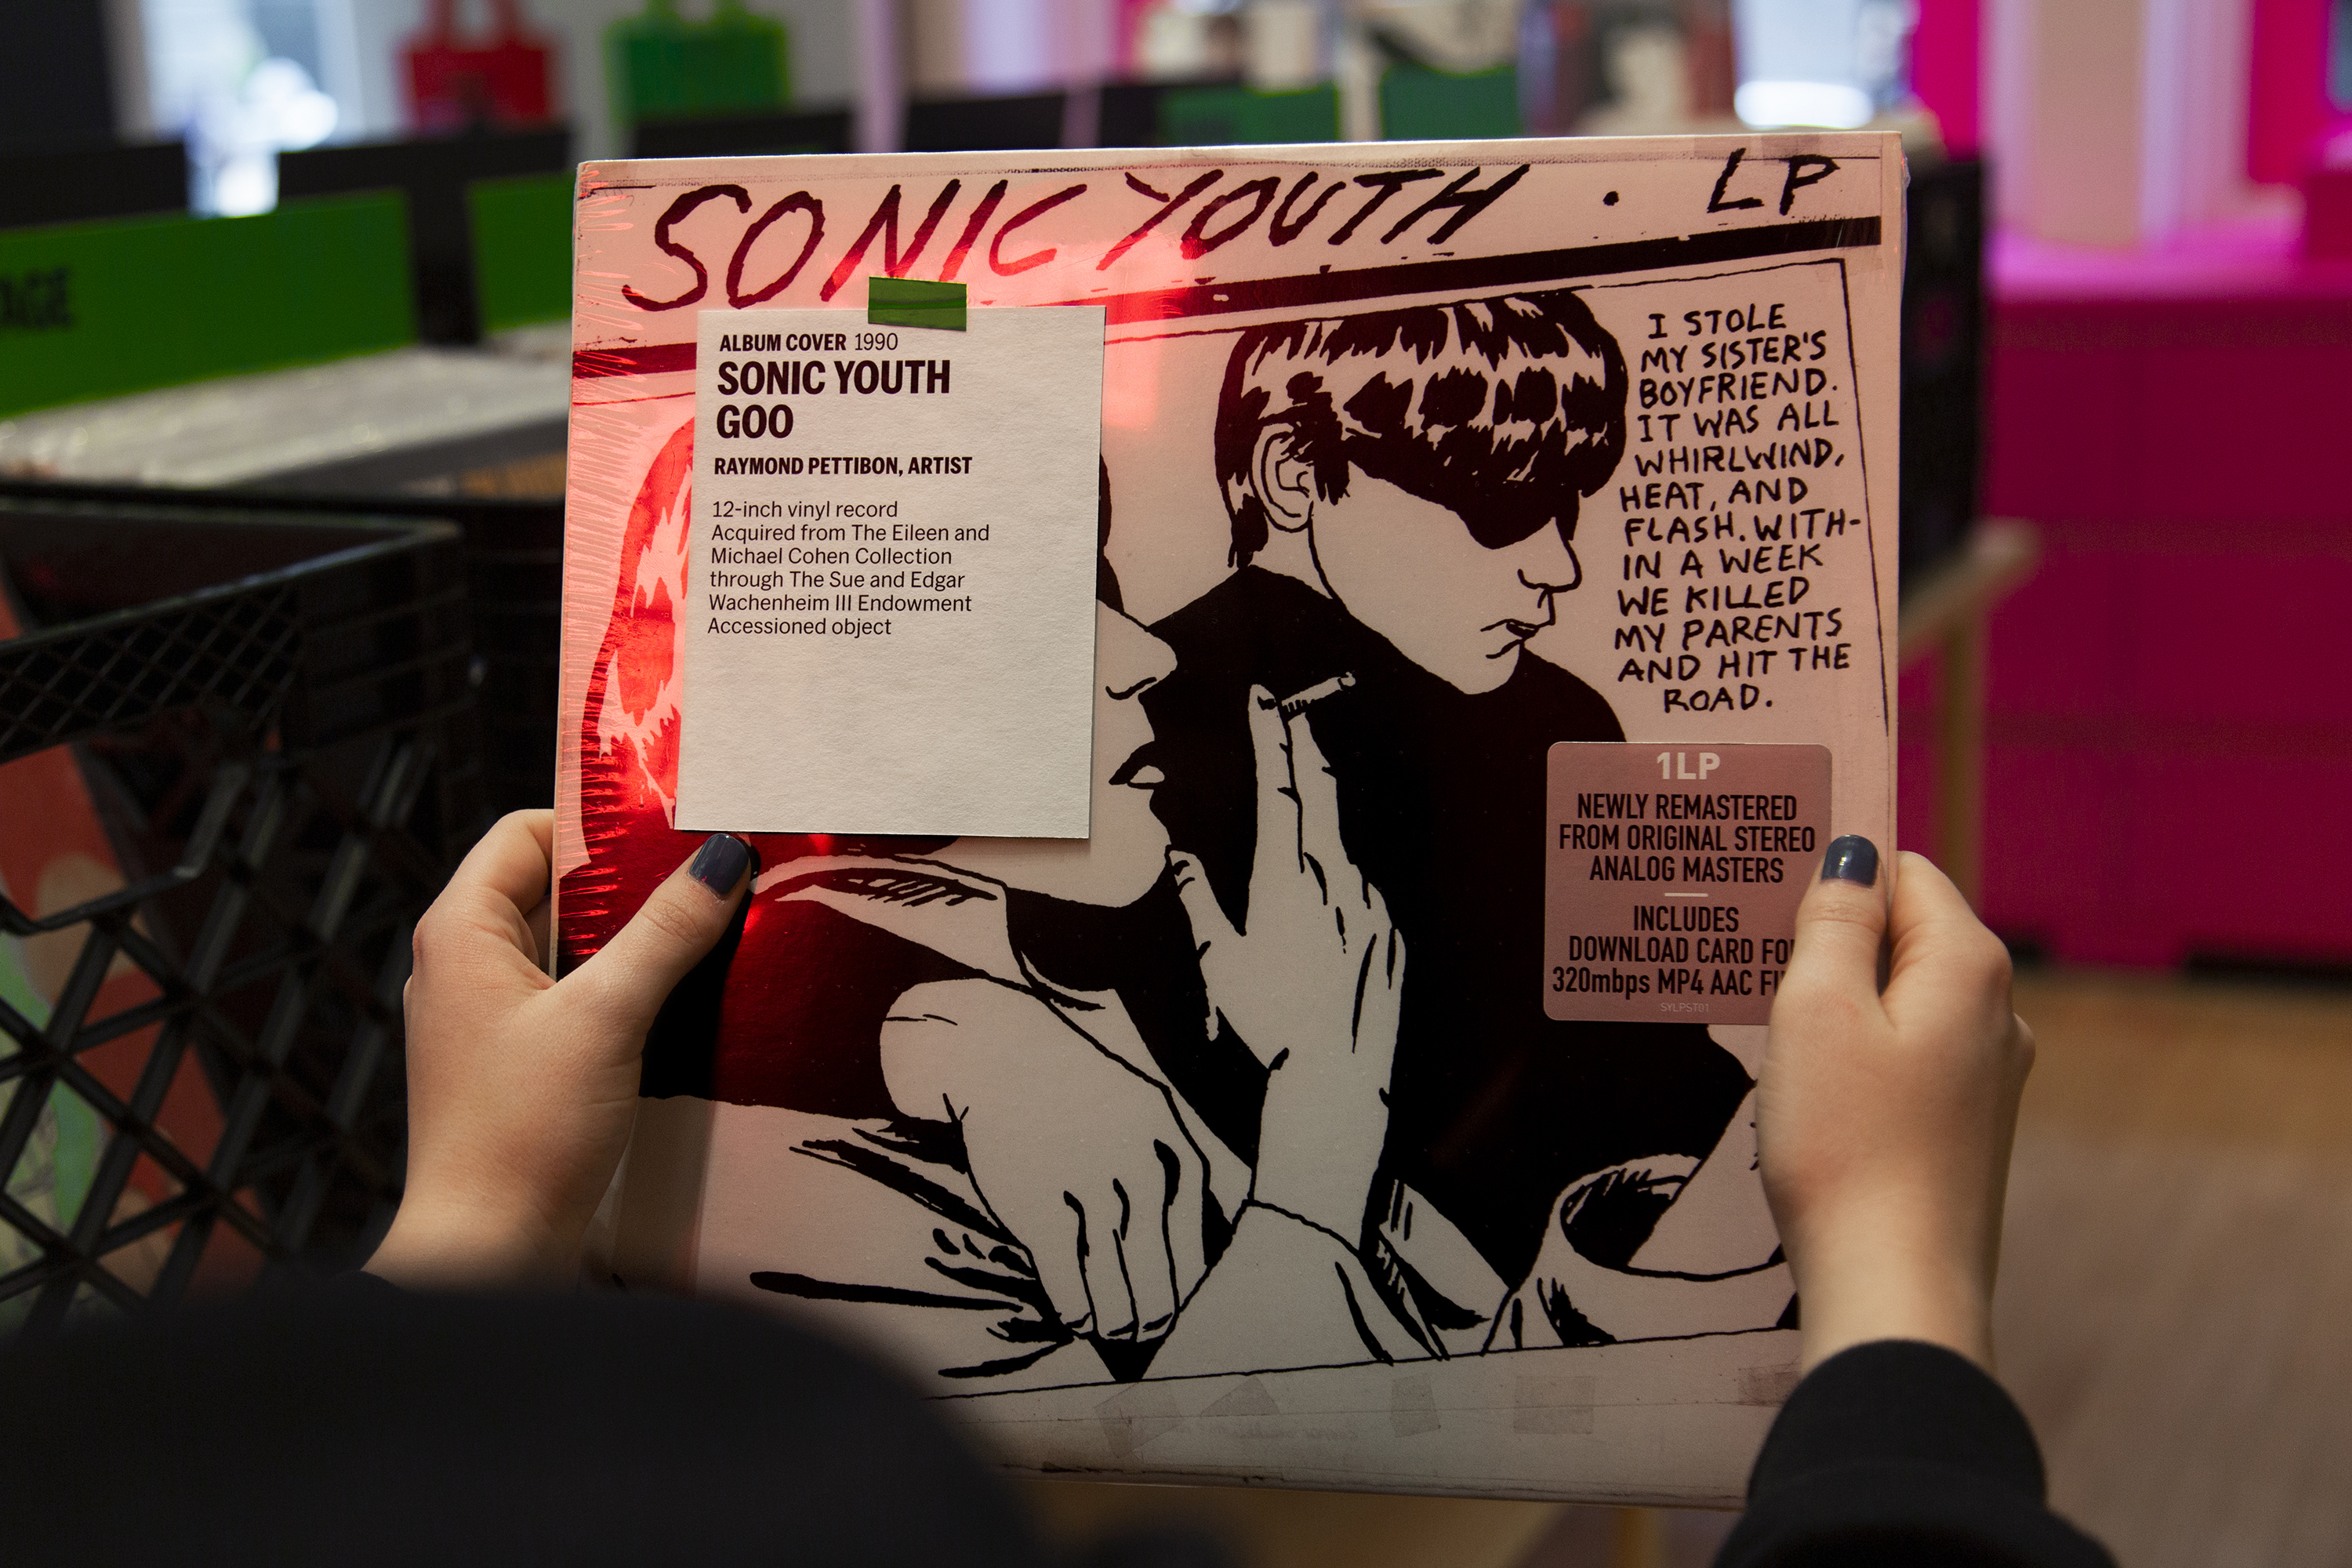 SONIC YOUTH · LP
ALBUM COVER 1990
SONIC YOUTH
GOO
RAYMOND PETTIBON, ARTIST
12-inch vinyl record
Acquired from The Eileen and
Michael Cohen Collection
through The Sue and Edgar
Wachenheim III Endowment
Accessioned object
I STOLE
MY SISTER'S
BOYFRIEND.
IT WAS ALL
WHIRLWIND,
HEAT, AND
FLASH. WITH-
IN A WEEK
WE KILLED
MY PARENTS
AND HIT THE
ROAD.
1LP
NEWLY REMASTERED
FROM ORIGINAL STEREO
ANALOG MASTERS
INCLUDES
DOWNLOAD CARD
320mbps MP4 AAC
SYLPST01